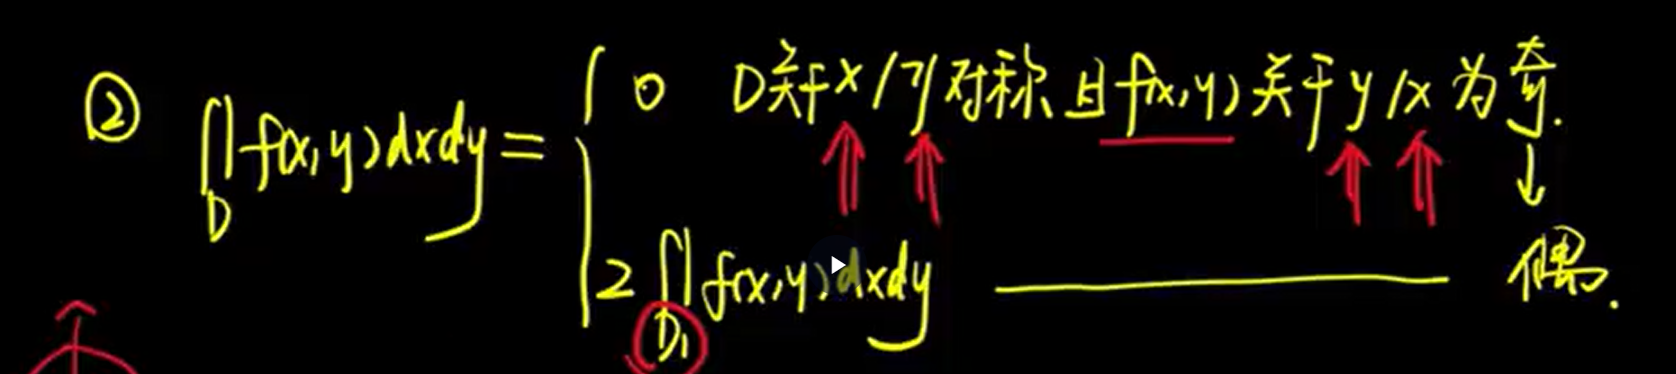 ② ∬_D f(x,y)dxdy = { 0 D关于x/y对称且f(x,y)关于y/x为奇.
2∬_D₁ f(x,y)dxdy ———— 偶.